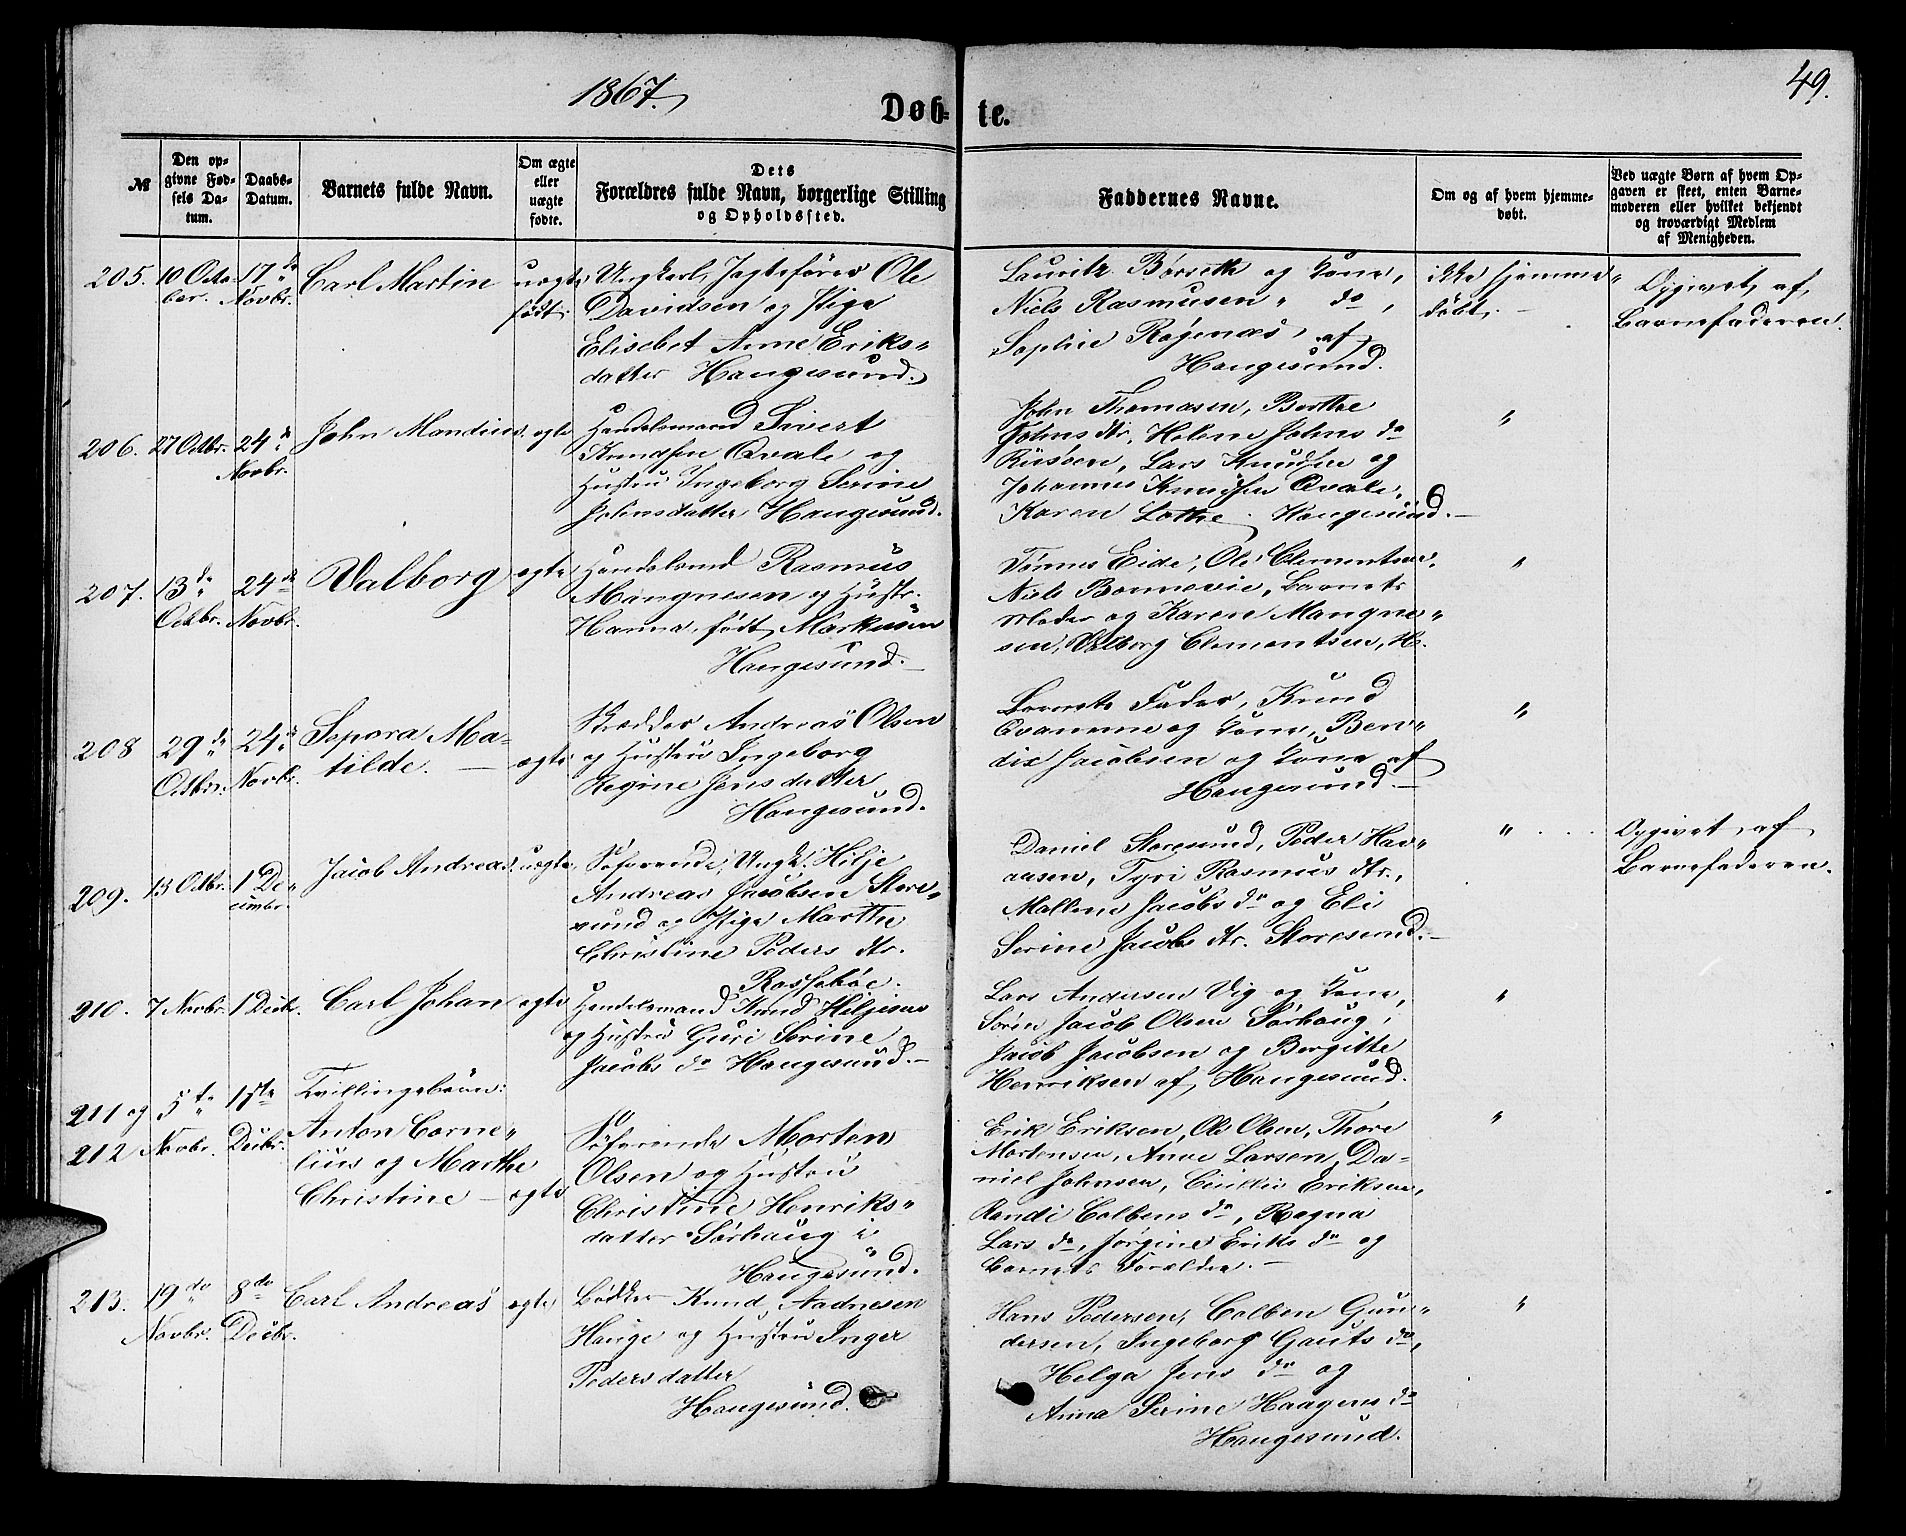 1867.
49.
Døb- te.
№
Den op-
givne Fød-
sels Da-
tum.
Daabs-
Datum.
Barnets fulde Navn.
Om ægte
eller
uægte
fødte.
Dets
Forældres fulde Navn, borgerlige Stilling
og Opholdssted.
Faddernes Navne.
Om og af hvem hjemme-
døbt.
Ved uægte Børn af hvem Op-
gaven er skeet, enten Barne-
moderen eller hvilket bekjendt
og troværdigt Medlem
af Menigheden.
205.
10 Octo
ber.
17 de
Novbr.
Carl Martin
uægte
født.
Ungkarl, Jagtefører Ole
Davidsen og Pige
Elisebet Anne Eriks"
datter Haugesund.
Lauritz Børseth og Kone,
Niels Rasmusen " do,
Sophie Røgenæs, af
Haugesund.
ikke hjemme"
døbt.
Opgivet af
Barnefaderen.
206.
27 Octbr.
24 de
Novbr.
John Mandius.
ægte
Handelsmand Sivert
Knudsen Qvale og
Hustru Ingeborg Serine
Johnsdatter Haugesund.
John Thomasen, Berthe
Johns dtr, Helene Johns da
Risøen, Lars Knudsen og
Johannes Knudsen Qvale,
Karen Lothe. Haugesund.
"
207.
13 de
Octbr.
24 de
Novbr.
Valborg
ægte
Handelsmd Rasmus
Mangnesen og Hustr.
Hanna, født Markusen
Haugesund.
Tønnes Eide, Ole Clementsen,
Niels Bonnevie, Barnets
Moder og Karen Mangne"
sen, Valborg Clementsen, H.
"
208
29 de
Octbr.
24 de
Novbr.
Sepora Ma-
tilde.
ægte
Skrædder Andreas Olsen
og Hustru Ingeborg
Regine Jensdatter
Haugesund.
Barnets Fader, Knud
Qvamme og Kone, Ben"
dix Jacobsen og Kone af
Haugesund.
"
209.
13 Octbr.
1 De"
cember.
Jacob Andreas.
uægte
Søfarende, Ungk. Hilje
Andreas Jacobsen Store"
sund og Pige Marthe
Christine Peders dtr.
Rossebøe.
Daniel Storesund, Peder Hav"
aasen, Tyri Rasmus dtr.,
Mallene Jacobs da og Eli
Serine Jacobs dtr. Storesund.
"
Opgivet af
Barnefaderen.
210.
7 Novbr.
1 Decbr.
Carl Johan
ægte
Handelsmand Knud Hiljesen
og Hustru Guri Serine
Jacobs da Haugesund.
Lars Andersen Vig og Kone,
Søren Jacob Olsen Sørhaug,
Jacob Jacobsen og Bergitte
Henriksen af Haugesund.
"
211 og
212
5te
Novbr.
1ste
Decbr.
Tvillingebørn:
Anton Corne"
lius og Marthe
Christine
ægte
Søfarende Morten
Olsen og Hustru
Christine Henriks"
datter Sørhaug i
Haugesund.
Erik Eriksen, Ole Olsen, Thore
Mortensen, Anne Larsen, Da-
niel Johnsen, Cicilie Eriksen,
Randi Colbens da, Ragna
Lars da, Jørgine Eriks da og
Barnets Forældre.
"
213.
19 de
Novbr.
8 de
Decbr.
Carl Andreas
ægte
Bødker Knud Aadnesen
Hauge og Hustru Inger
Pedersdatter
Haugesund.
Hans Pedersen, Colben Gun"
dersen, Ingeborg Gauts da,
Helga Jens da og
Anna Serine Haagens da
Haugesund.
"